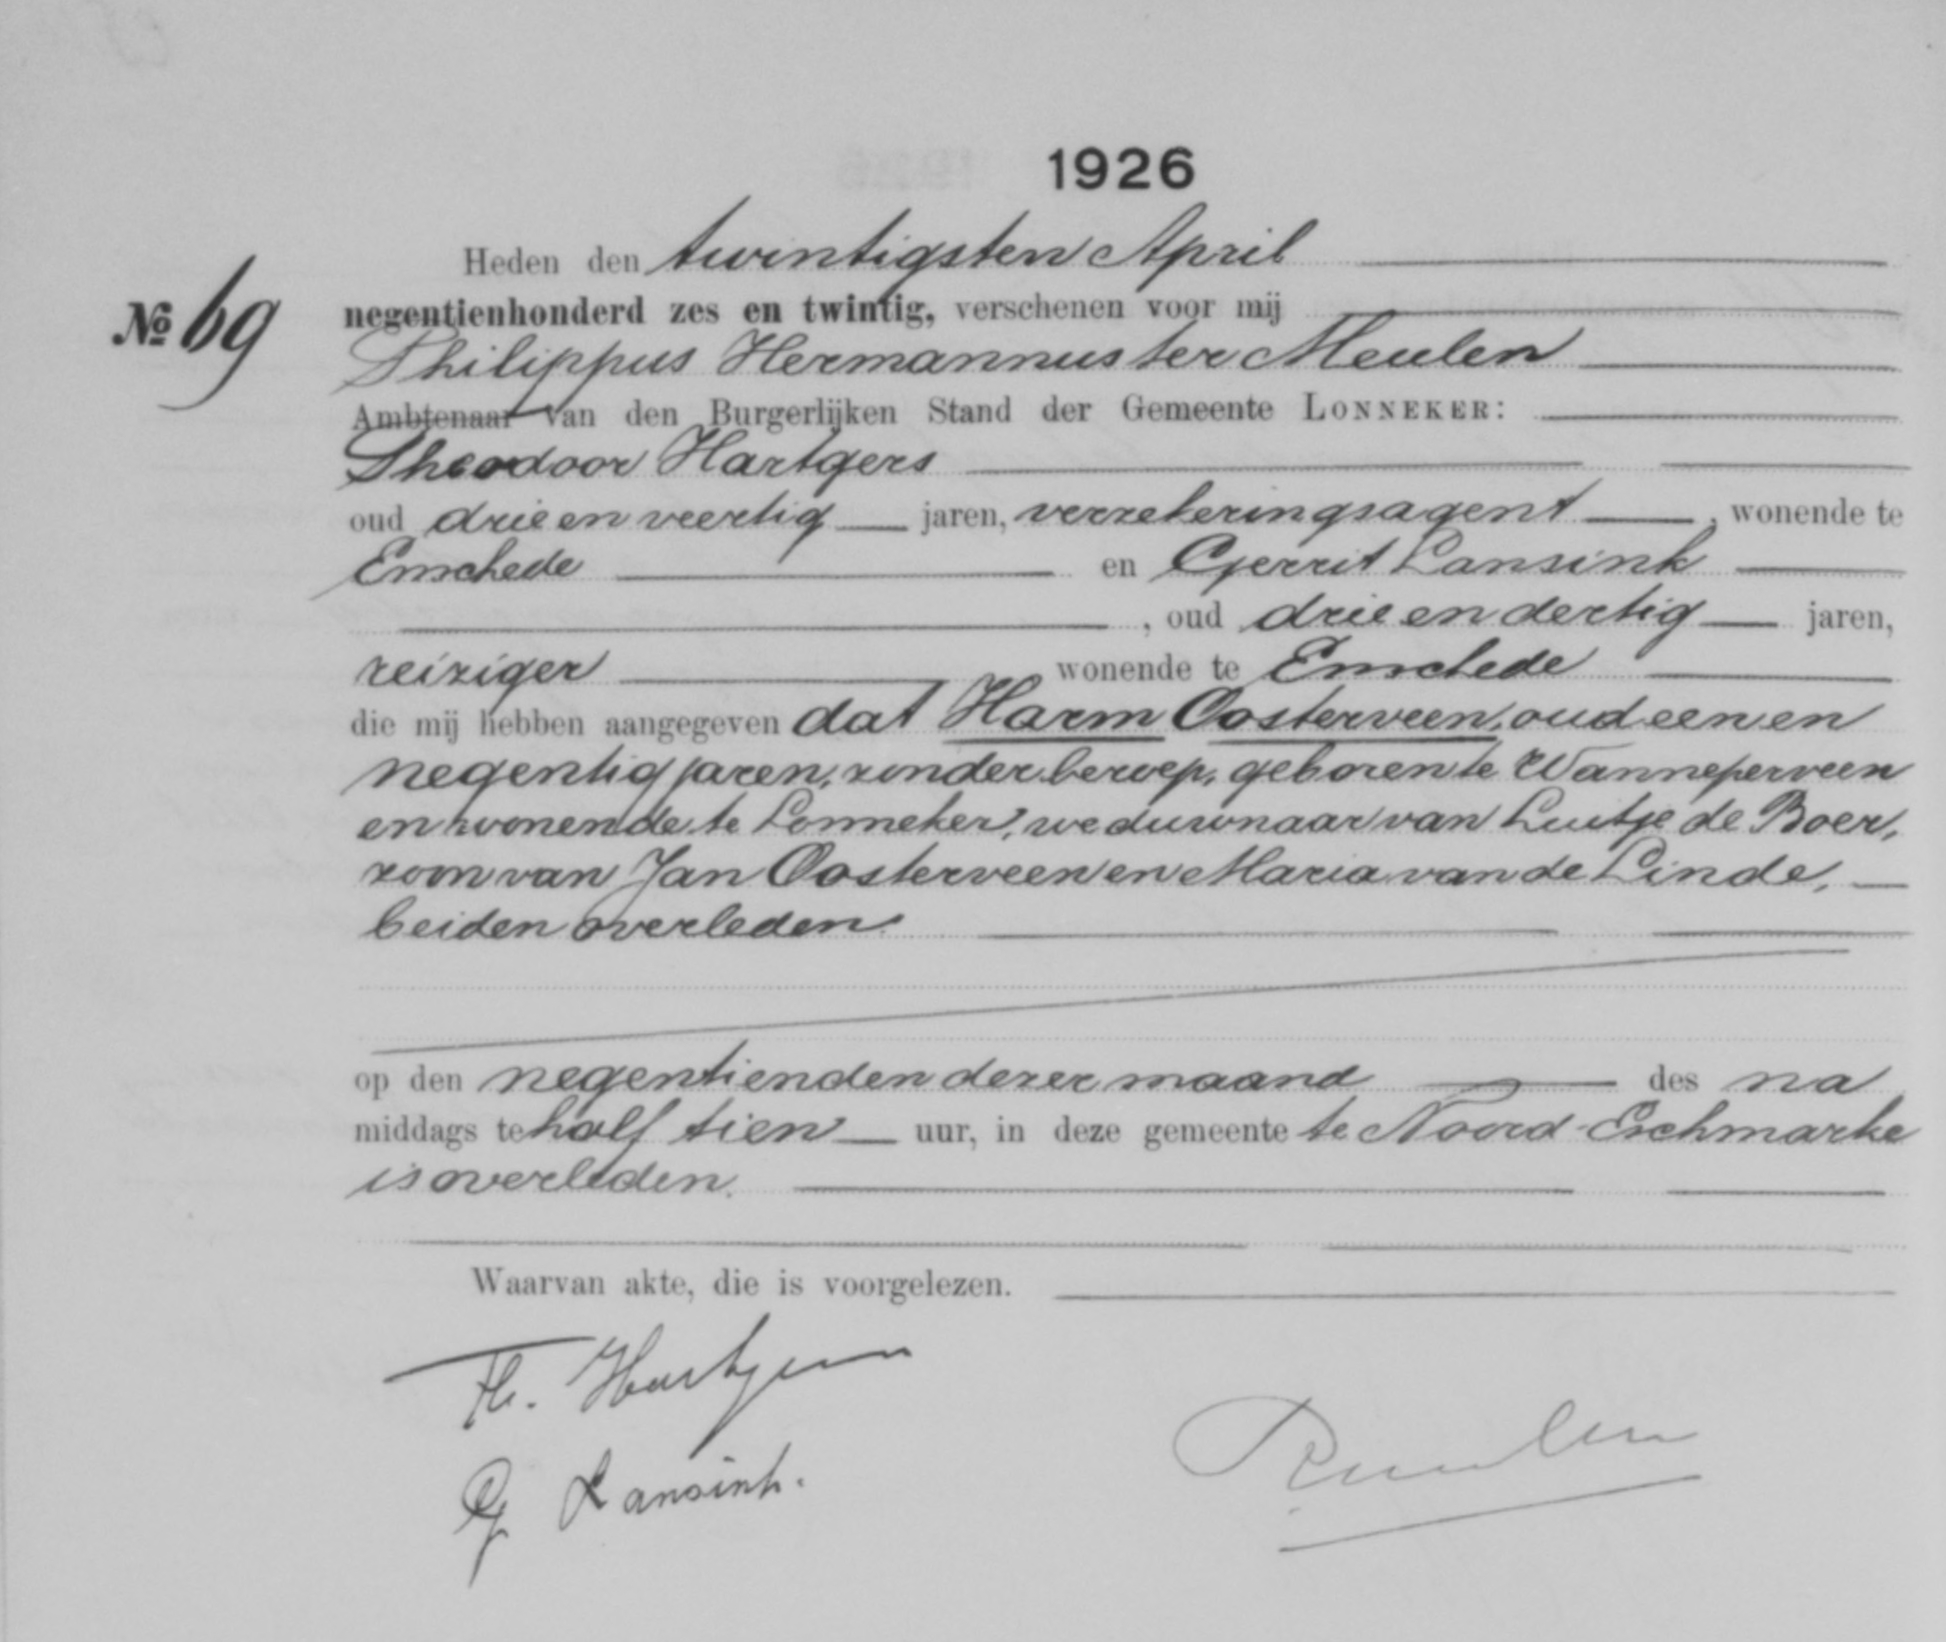 1926
Heden den twintigsten April
No 69
negentienhonderd zes en twintig, verschenen voor mij
Philippus Hermannus ter Meulen
Ambtenaar van den Burgerlijken Stand der Gemeente LONNEKER:
Theodoor Hartgers
oud drie en veertig jaren, verzekeringsagent, wonende te
Enschede en Gerrit Lansink
, oud drie en dertig jaren,
reiziger wonende te Enschede
die mij hebben aangegeven dat Harm Oosterveen, oud een en
negentig jaren, zonder beroep, geboren te Wanneperveen
en wonende te Lonneker, weduwnaar van Luitje de Boer,
zoon van Jan Oosterveen en Maria van de Linde,
beiden overleden.
op den negentienden dezer maand des na
middags te half tien uur, in deze gemeente te Noord-Eschmarke
is overleden.
Waarvan akte, die is voorgelezen.
Th. Hartgers
G Lansink.